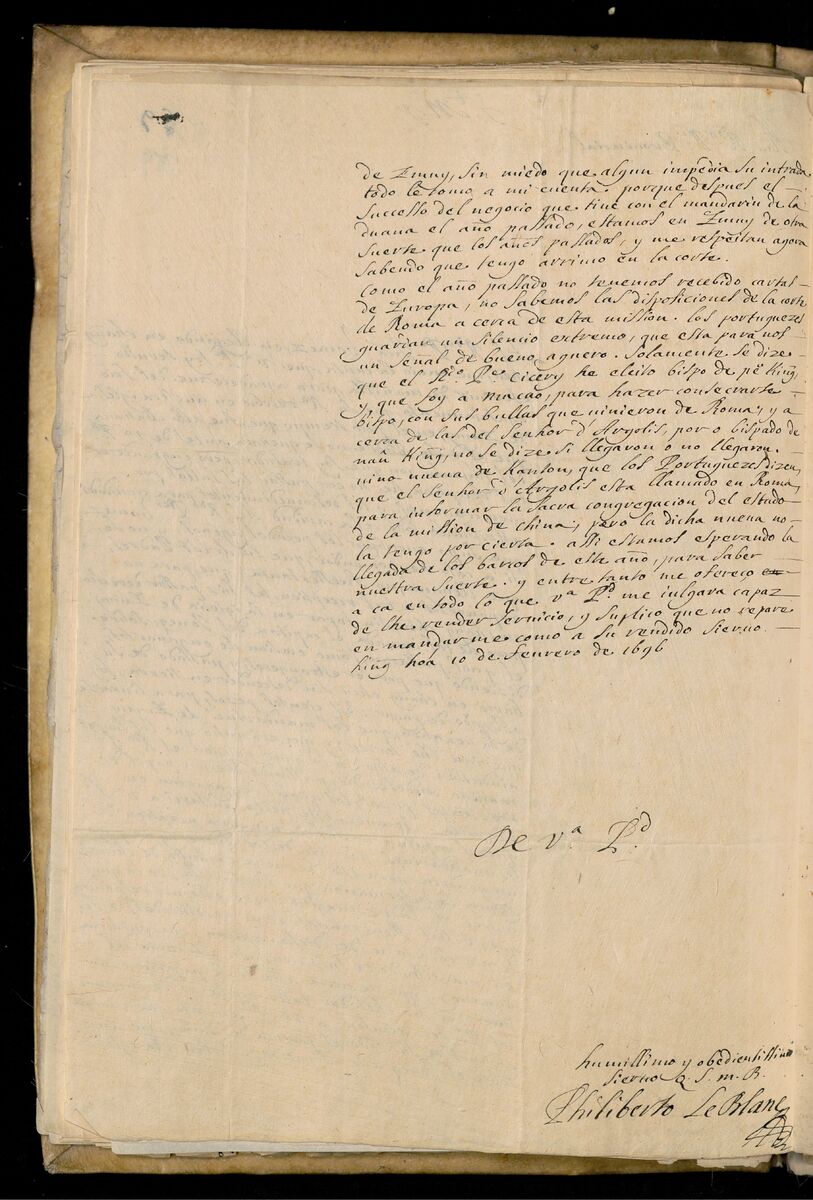 de Emuy, sin miedo que algun impedia su intrada
todo le tomo a mi cuenta. porque despues el
successo del negocio que tiné con el mandarin de la
duana el año passado, estamos en Emuy de otra
suerte que los años passados, y me respeitan agora
sabendo que tengo arrimo en la corte.
como el año passado no tenemos recebido cartas
de Europa, no sabemos las disposiciones de la corte
de Roma a cerca de esta mission. los portuguezes
guardan un silencio extremo, que esta para nos
un señal de bueno aguero. Solamente se dize
que el Rdo. Pe. Cicery he eleito bispo de pē King,
y que foy a macao, para hazer consecrarse
bispo, con sus bullas que uinieron de Roma; y a
cerca de las del Senhor d'Argolis, por o bispado de
nañ King, no se dize si llegaron o no llegaron.
uino nueua de Kanton, que los Portuguezes dizen,
que el Senhor d'Argolis esta llamado en Roma,
para informar la sacra congregacion del estado
de la mission de China; pero la dicha nueua no
la tengo por cierta. assi estamos esperando la
llegada de los barcos de este año, para saber
nuestra suerte. y entre tanto me ofereço
a ca en todo lo que va. Pd. me iulgara capaz
de lhe render seruicio, y suplico que no repare
en mandarme como a su rendido sieruo.
King hoá 10 de feurero de 1696
De va. Pd.
humillimo y obedientissimo
sieruo Q. S. m. B.
Philiberto Le Blanc